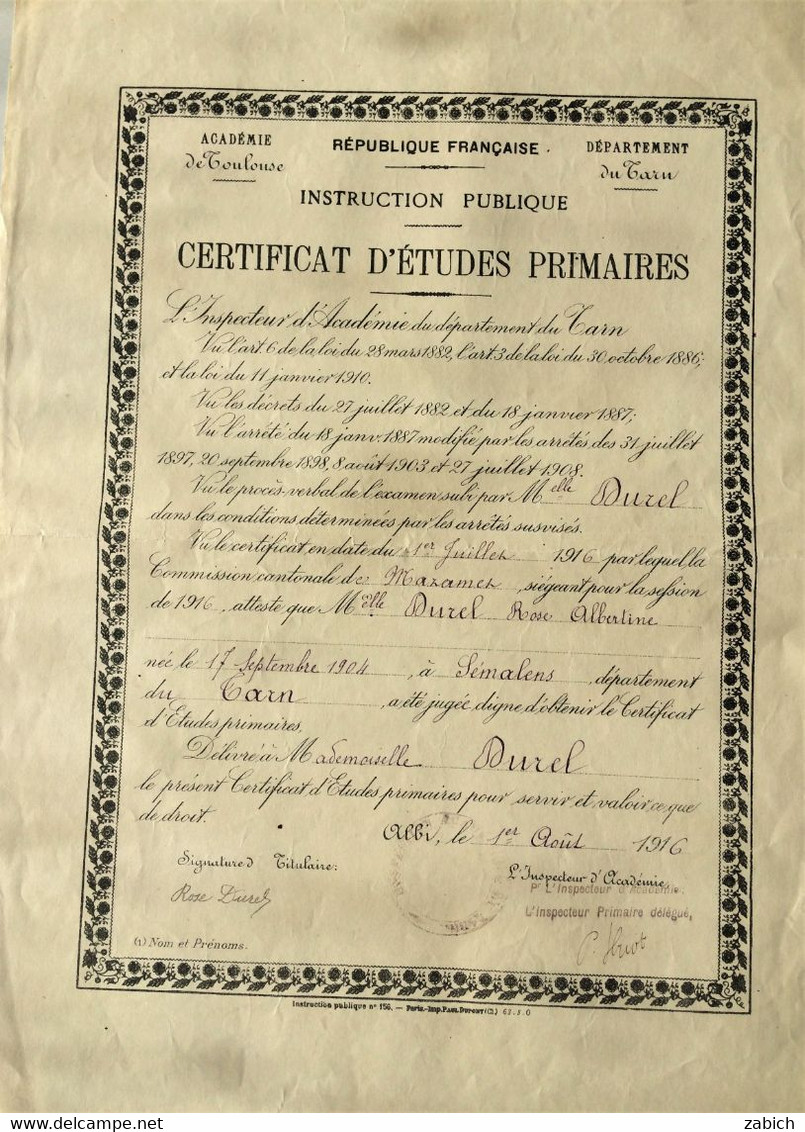 ACADÉMIE
de Toulouse
RÉPUBLIQUE FRANÇAISE.
DÉPARTEMENT
du Tarn
INSTRUCTION PUBLIQUE
CERTIFICAT D'ÉTUDES PRIMAIRES
L'Inspecteur d'Académie du département du Tarn
Vu l'art. 6 de la loi du 28 mars 1882, l'art. 3 de la loi du 30 octobre 1886;
et la loi du 11 janvier 1910.
Vu les décrets du 27 juillet 1882 et du 18 janvier 1887;
Vu l'arrêté du 18 janv. 1887 modifié par les arrêtés des 31 juillet
1897, 20 septembre 1898, 8 août 1903 et 27 juillet 1908.
Vu le procès verbal de l'examen subi par Melle Durel
dans les conditions déterminées par les arrêtés susvisés.
Vu le certificat en date du 1er Juillet 1916 par lequel la
Commission cantonale de Mazamet, siégeant pour la session
de 1916, atteste que Melle Durel Rose Albertine
née le 17 Septembre 1904, à Sémalens, département
du Tarn, a été jugée digne d'obtenir le Certificat
d'Etudes primaires.
Délivré à Mademoiselle Durel
le présent Certificat d'Etudes primaires pour servir et valoir ce que
de droit.
Albi, le 1er Août 1916
Signature d Titulaire:
L'Inspecteur d'Académie,
Pr L'Inspecteur d'Académie:
L'Inspecteur Primaire délégué,
Rose Durel
(1) Nom et Prénoms.
Instruction publique nº 156. — Paris.-Imp. PAUL DUPONT (Cl.) 62.5.0
zabich